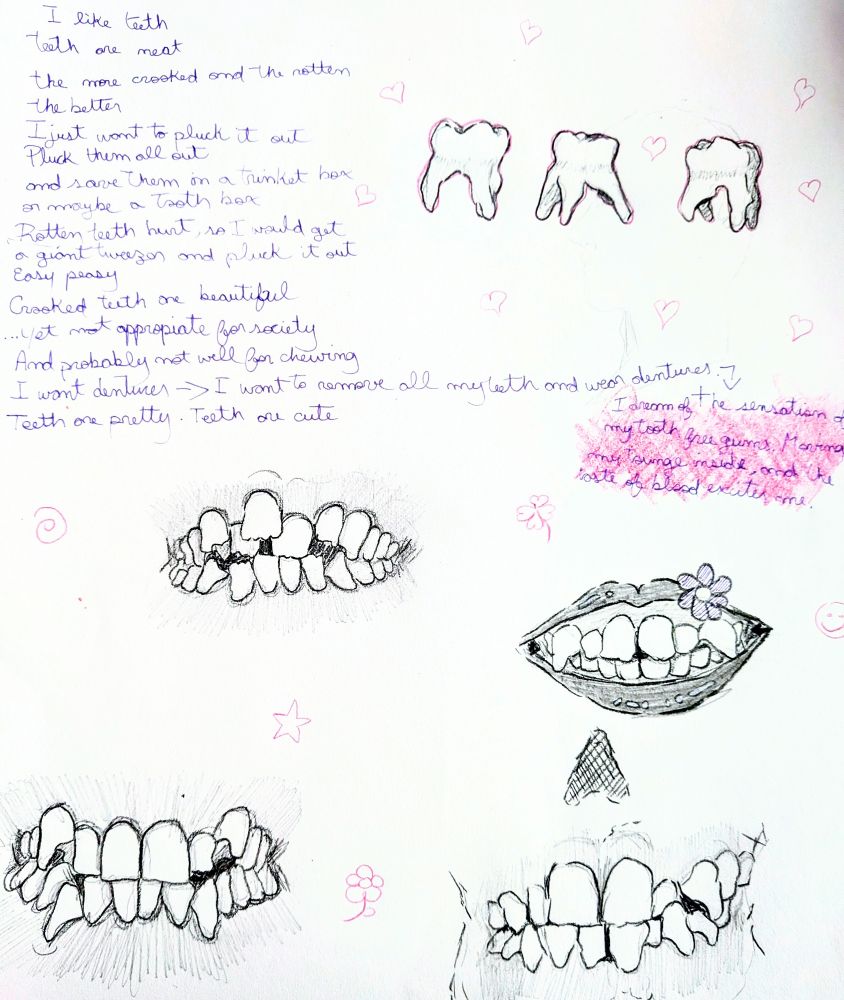 I like teeth
Teeth are neat
the more crooked and the rotten
the better
I just want to pluck it out
Pluck them all out
and save them in a trinket box
or maybe a tooth box
Rotten teeth hurt, so I would get
a giant tweezor and pluck it out
Easy peasy
Crooked teeth are beautiful
...yet not appropiate for society
And probably not well for chewing
I want dentures → I want to remove all my teeth and wear dentures. →
Teeth are pretty. Teeth are cute
I dream of the sensation of
my tooth free gums. Moving
my tounge inside, and the
taste of blood excites me.